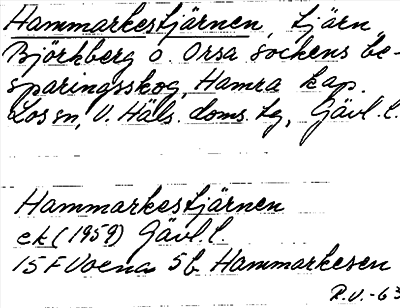 Hammarkestjärnen, tjärn,
Björkberg o. Orsa sockens be-
sparingsskog, Hamra kap.
Los sn, V. Häls. doms. tg, Gävl. l.
Hammarkestjärnen
ek (1959) Gävl. l.
15F Voxna 5b Hammarkesen
R.V. -63